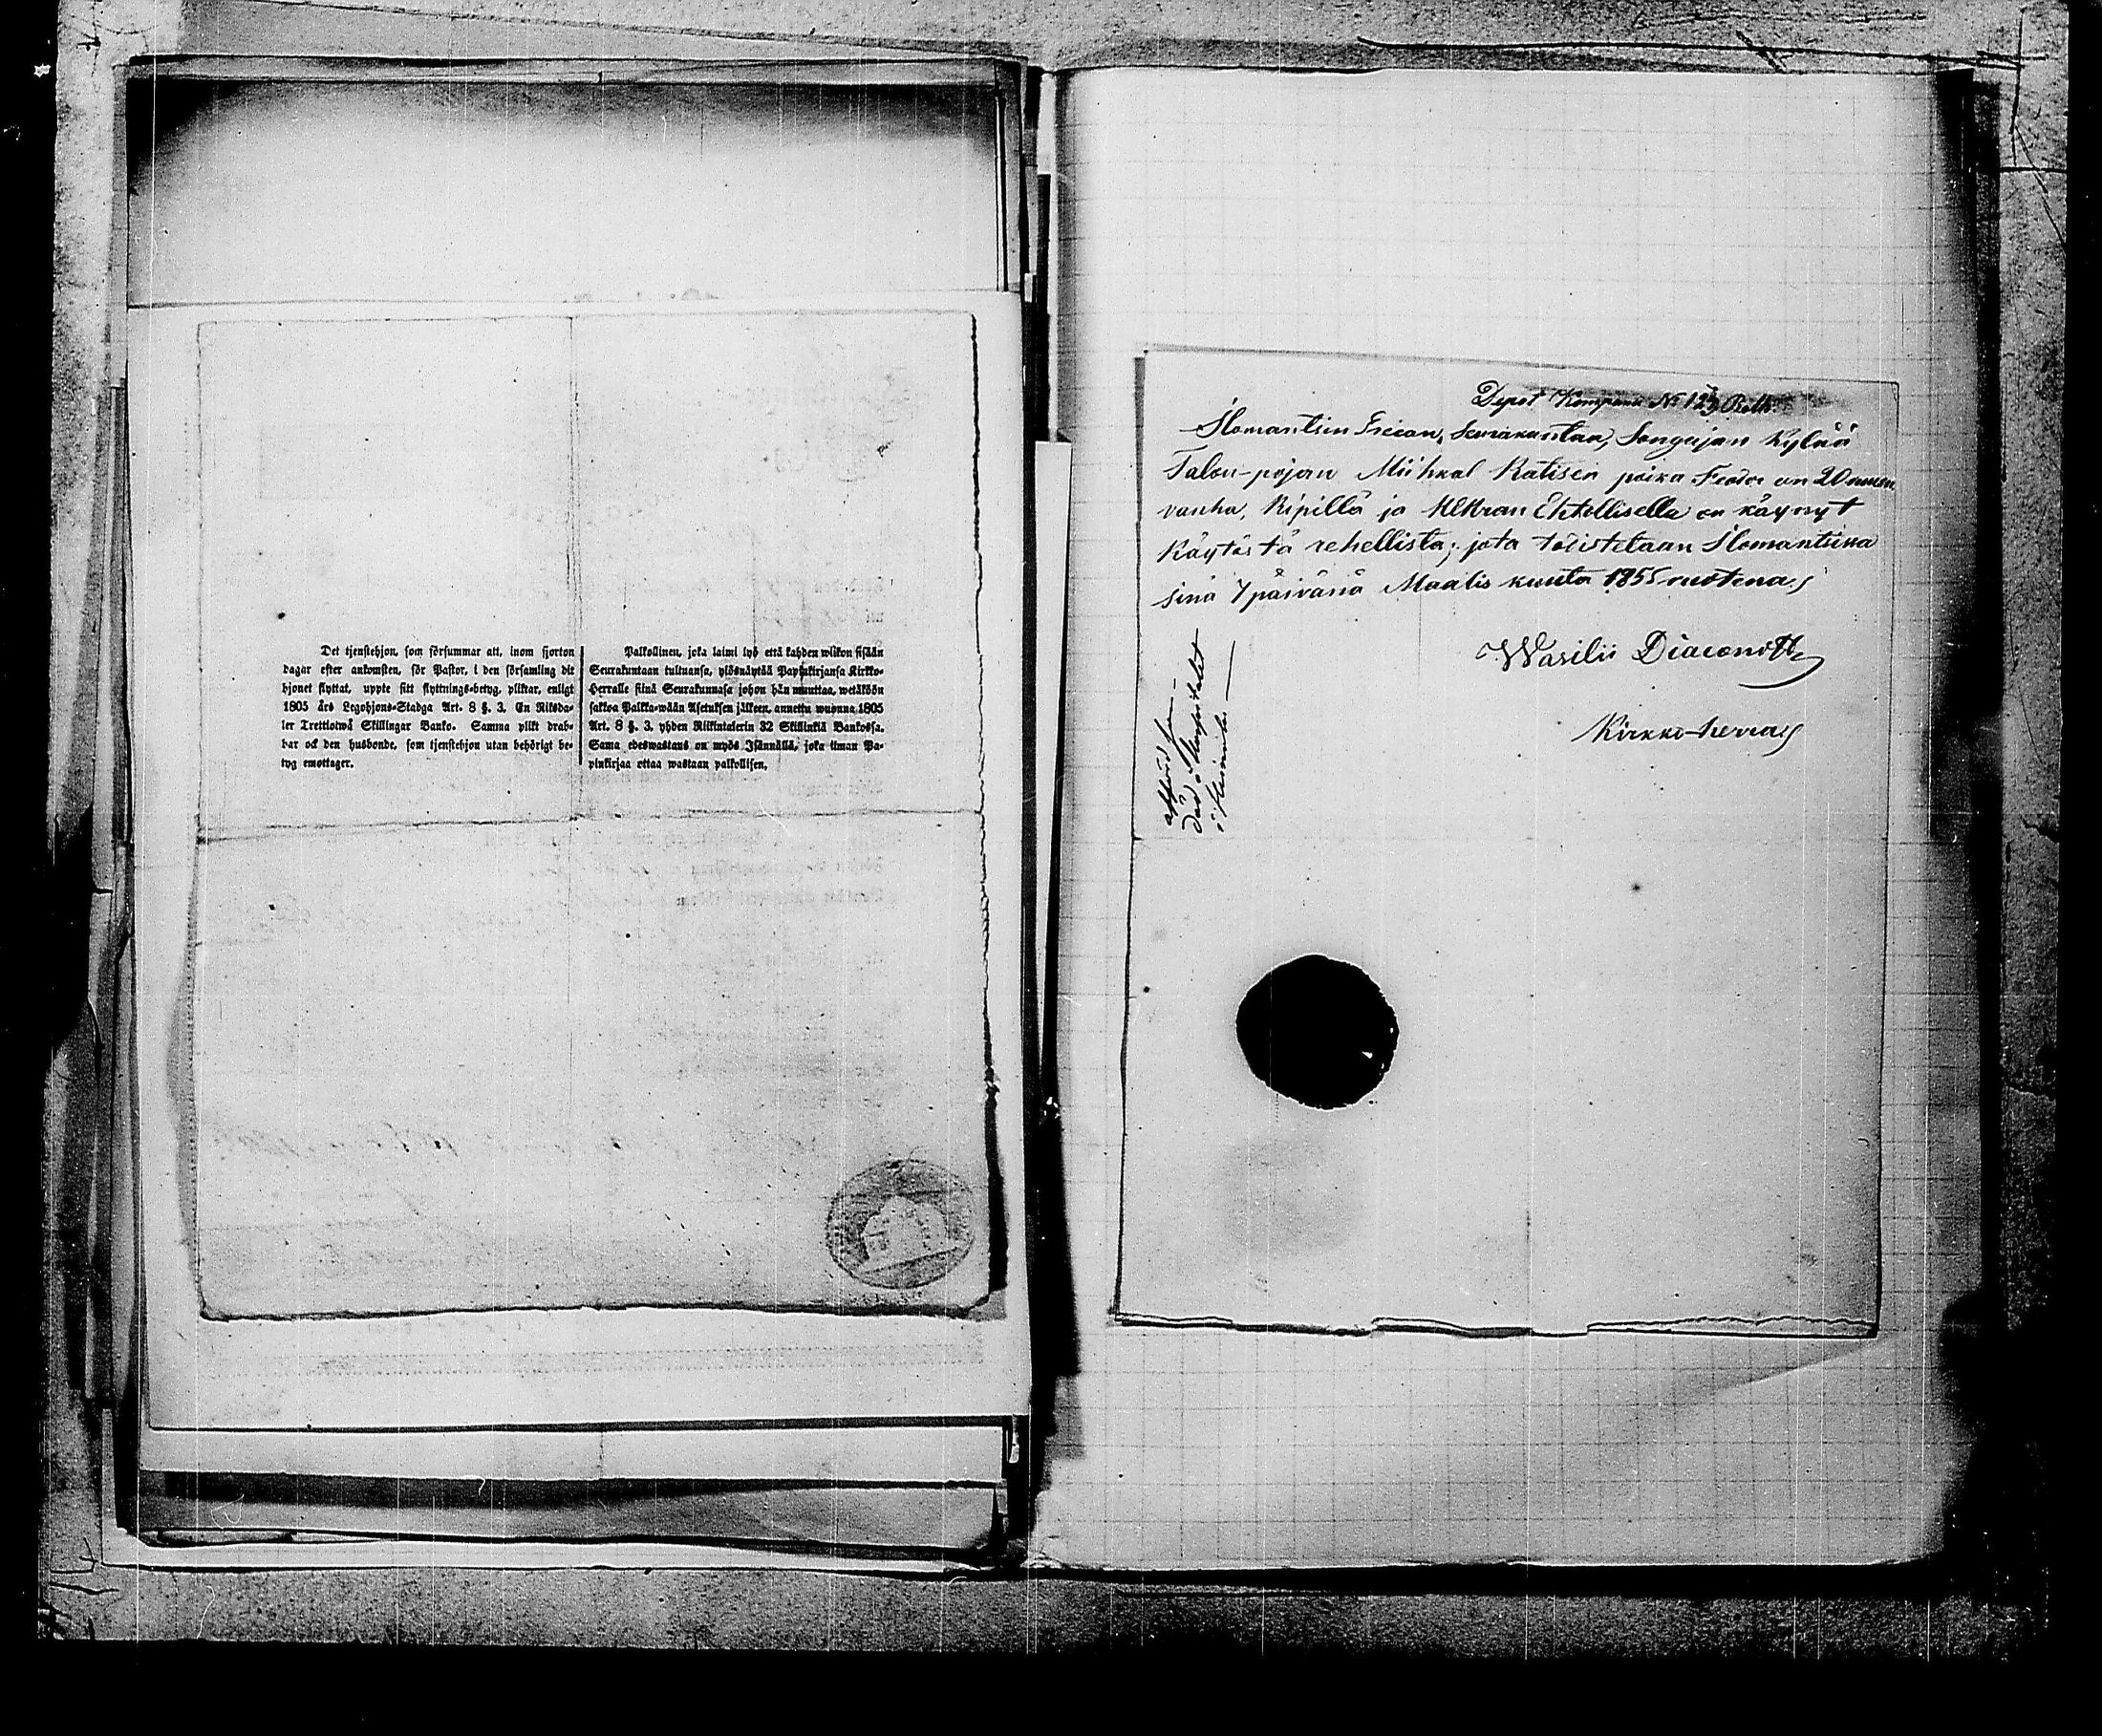 Det tjenstehjon, som försummar att, inom fjorton
dagar efter ankomsten, för Pastor, i den församling dit
hjonet flyttat, uppte sitt flyttnings-betyg, pliktar, enligt
1805 års Legohjons-Stadga Art. 8 §. 3. En Riksda-
ler Trettiotwå Skillingar Banko. Samma plikt drab-
bar ock den husbonde, som tjenstehjon utan behörigt be-
tyg emottager.
Palkollinen, joka laimi lyö että kahden wiikon sisään
Seurakuntaan tultuansa, ylösnäytää Papinkirjansa Kirkko-
Herralle siinä Seurakunnasa johon hän muuttaa, wetäköön
sakkoa Palkka-wään Asetuksen jälkeen, annettu wuonna 1805
Art. 8 §. 3. yhden Riikintalerin 32 Skillinkiä Bankossa.
Sama edeswastaus on myös Isännällä, joka ilman Pa-
pinkirjaa ottaa wastaan palkollisen.
Depot Kompani No 12
Ilomantsin Frecan, Seurakuntaa, Songajan Kylää
Talon-pojan Miihkal Ratisen poika Feodor on 20
vanha, Ripillä ja HERran Ehtollisella on käynyt
Käytöstä rehellistä; jota todistetaan Ilomantsissa
sinä 7 päivänä Maalis kuuta 1855 vuotena
Wasilii Diaconoff
Kirkko-herra
afförd
död å Hospitalet
i